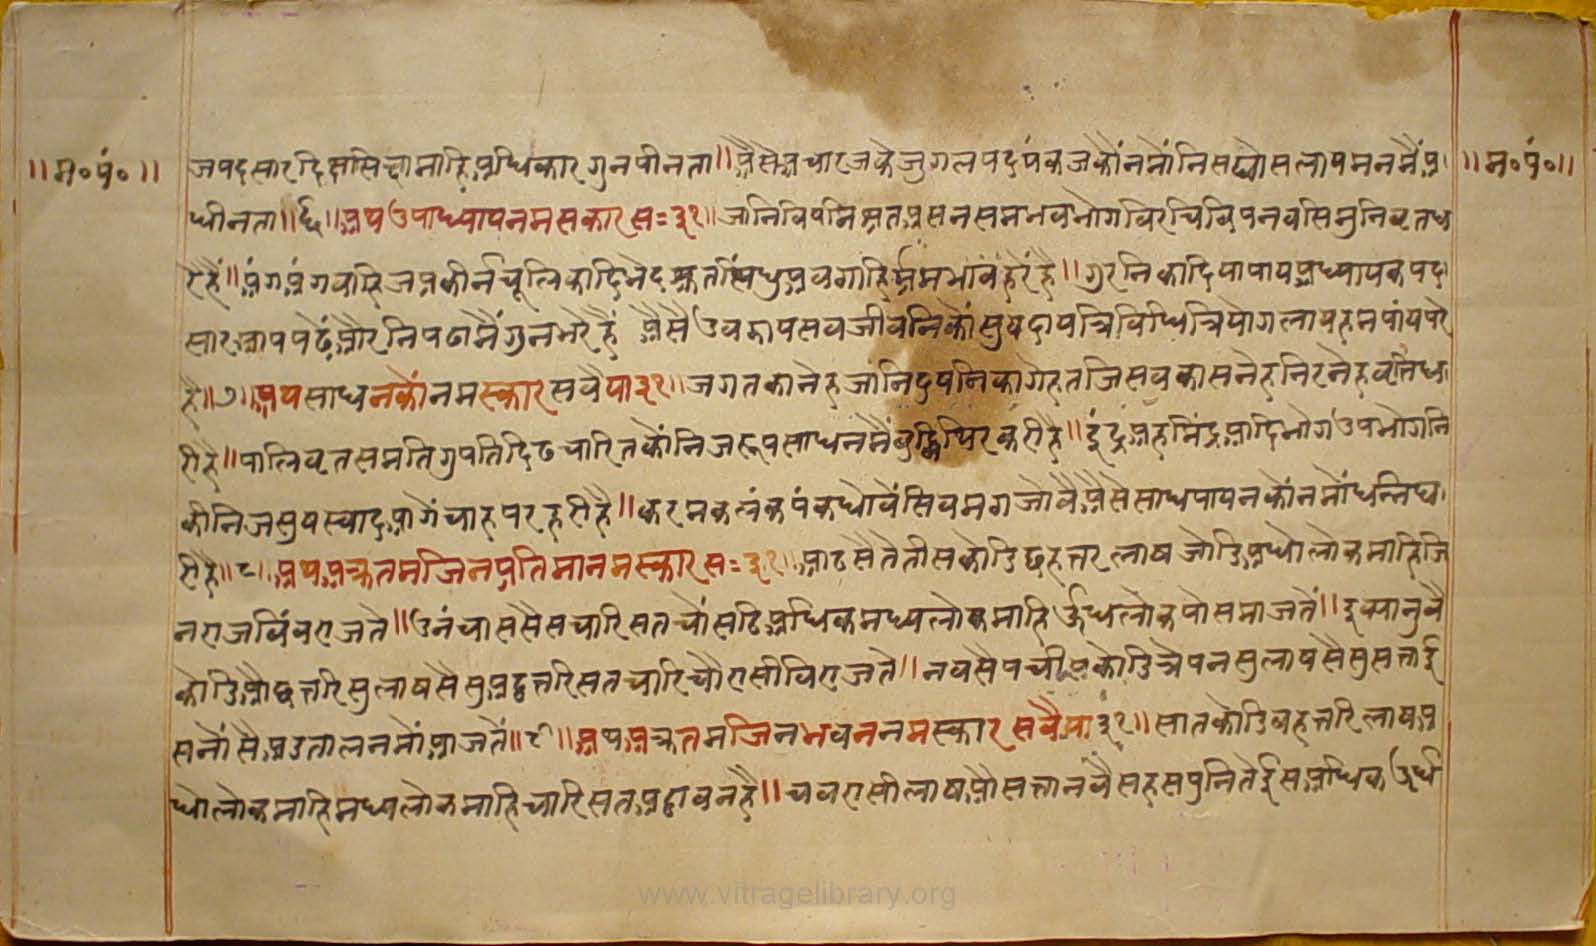 ॥म०पं०॥
जपदसारदिक्षासिक्षामाहिअधिकारगुनपीनता॥अैसेअचारजकेजुगलपदपंकजकौंनमौंनिसद्यौसलायमनमैंअ
॥म०पं०॥
धीनता॥६॥अथउपाध्यायनमसकारस=३१॥जानिविषमिश्रतअसनसमभवभोगविरचिविपनवसिमुनिवृतध
रेहैं॥अंगअंगवाहिजप्रकीर्नचूलिकादिभेदश्रुतसिंधुअवगाहिभ्रमभावहरेंहै॥गुरनिकादिषापायअध्यापकपद
सारआपपढेंऔरनिपढामैंगुनभरेहैं अैसैउवझायसवजीवनिकौंसुषदायत्रिविधित्रियोगलायहमपांयपरे
है॥७॥अथसाधनकौंनमस्कारसवैया३१॥जगतकानेहजांनिदुषनिकागेहतजिसवकासनेहनिरनेहवृतिध
रीहै॥पालिवृतसमतिगुपतिदिढचारितकौंनिजरूपसाधनमैंवुद्धिथिरकरीहै॥इंद्रअहमिंद्रआदिभोगउपभोगनि
कौनिजसुषस्वादआगेंचाहपरहरीहै॥करमकलंकपंकधोवेंसिवमगजोवैअैसैसाधपायनकौंनमौंधन्निघ
रीहै॥८॥अथअकृतमजिनप्रतिमानमस्कारस=३१॥आठसैतेतीसकोडिछहत्तरलाषजोडिअधोलोकमाहिजि
नराजविंवराजते॥उनंचाससैसचारिसतचौंसठिअधिकमध्यलोकमाहिऊर्धलोकयोसमाजतें॥इक्यानुवै
कोडिऔछहत्तरिसुलाषसैसुअठ्ठत्तरिसतचारिचौरासीविराजते॥नवसैपचीसकोडित्रेपनसुलाषसैसुसत्ताई
सनौंसैअडतालनमौंआजतें॥९॥अथअकृतमजिनभवननमस्कारसवैया३१॥सातकोडिवहत्तरिलाषअ
धोलोकमाहिमध्यलोकमाहिचारिसतअठ्ठावनहै॥चवरासीलाषऔसत्तानवैसहसपुनितेईसअधिकऊर्ध
www.vitragelibrary.org